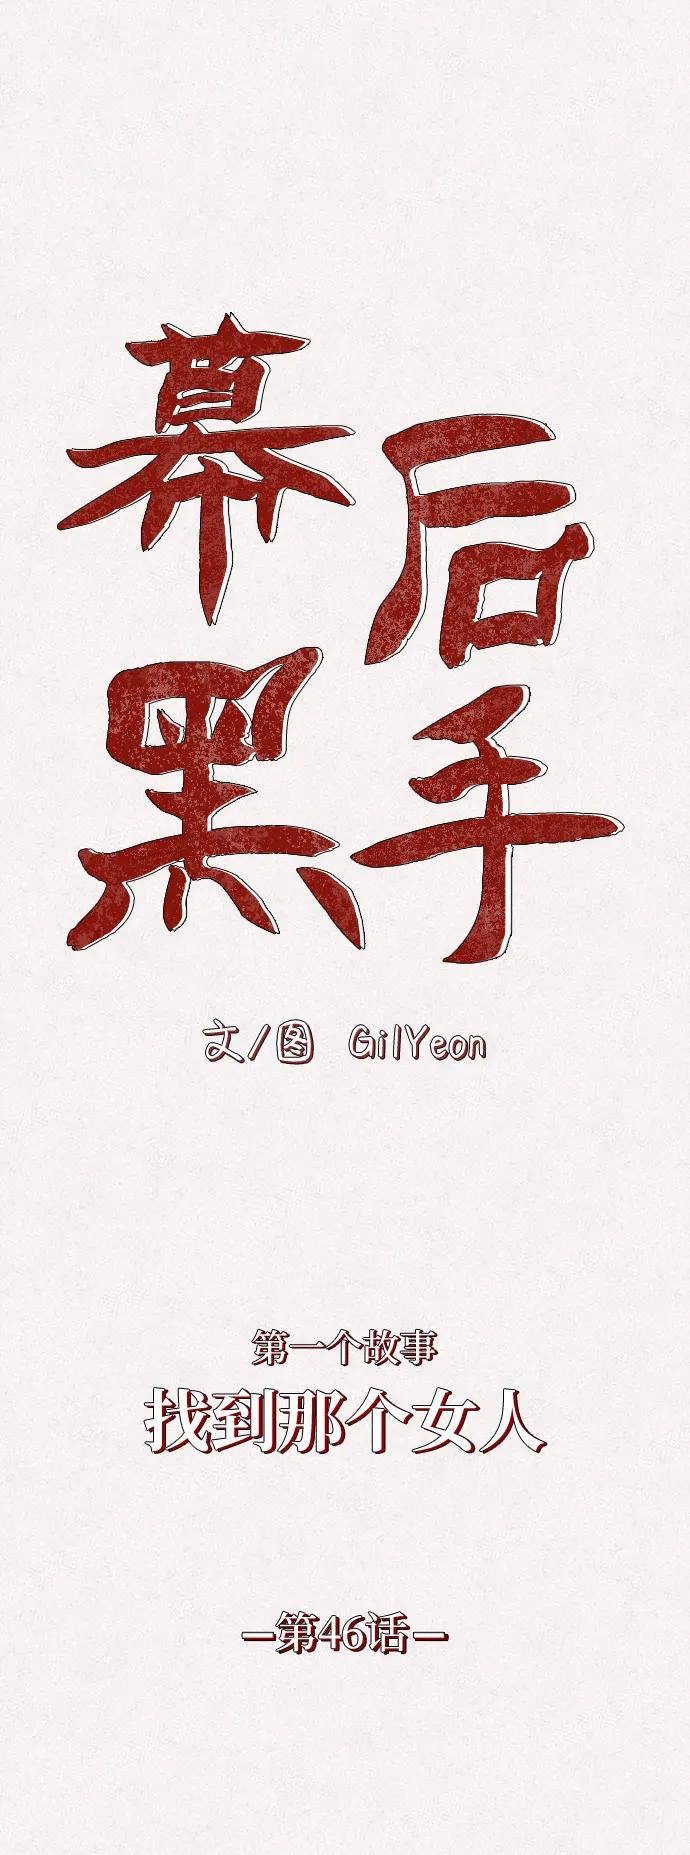 幕后
黑手
文/图 GilYeon
第一个故事
找到那个女人
—第46话—